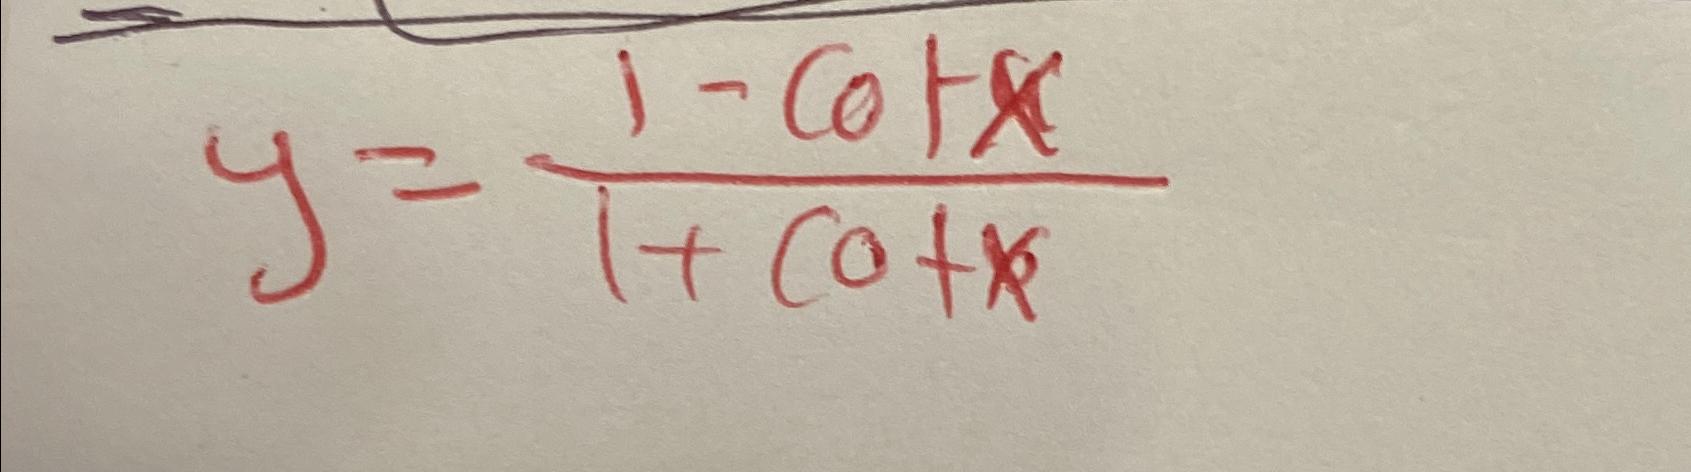 y = \frac{1 - cot x}{1 + cot x}